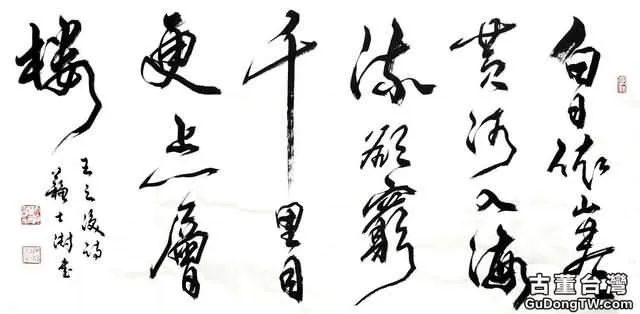 白日依山盡
黄河入海
流欲窮
千里目
更上一層
樓
王之渙詩
蘇士澍書
古董台灣
GuDongTW.com